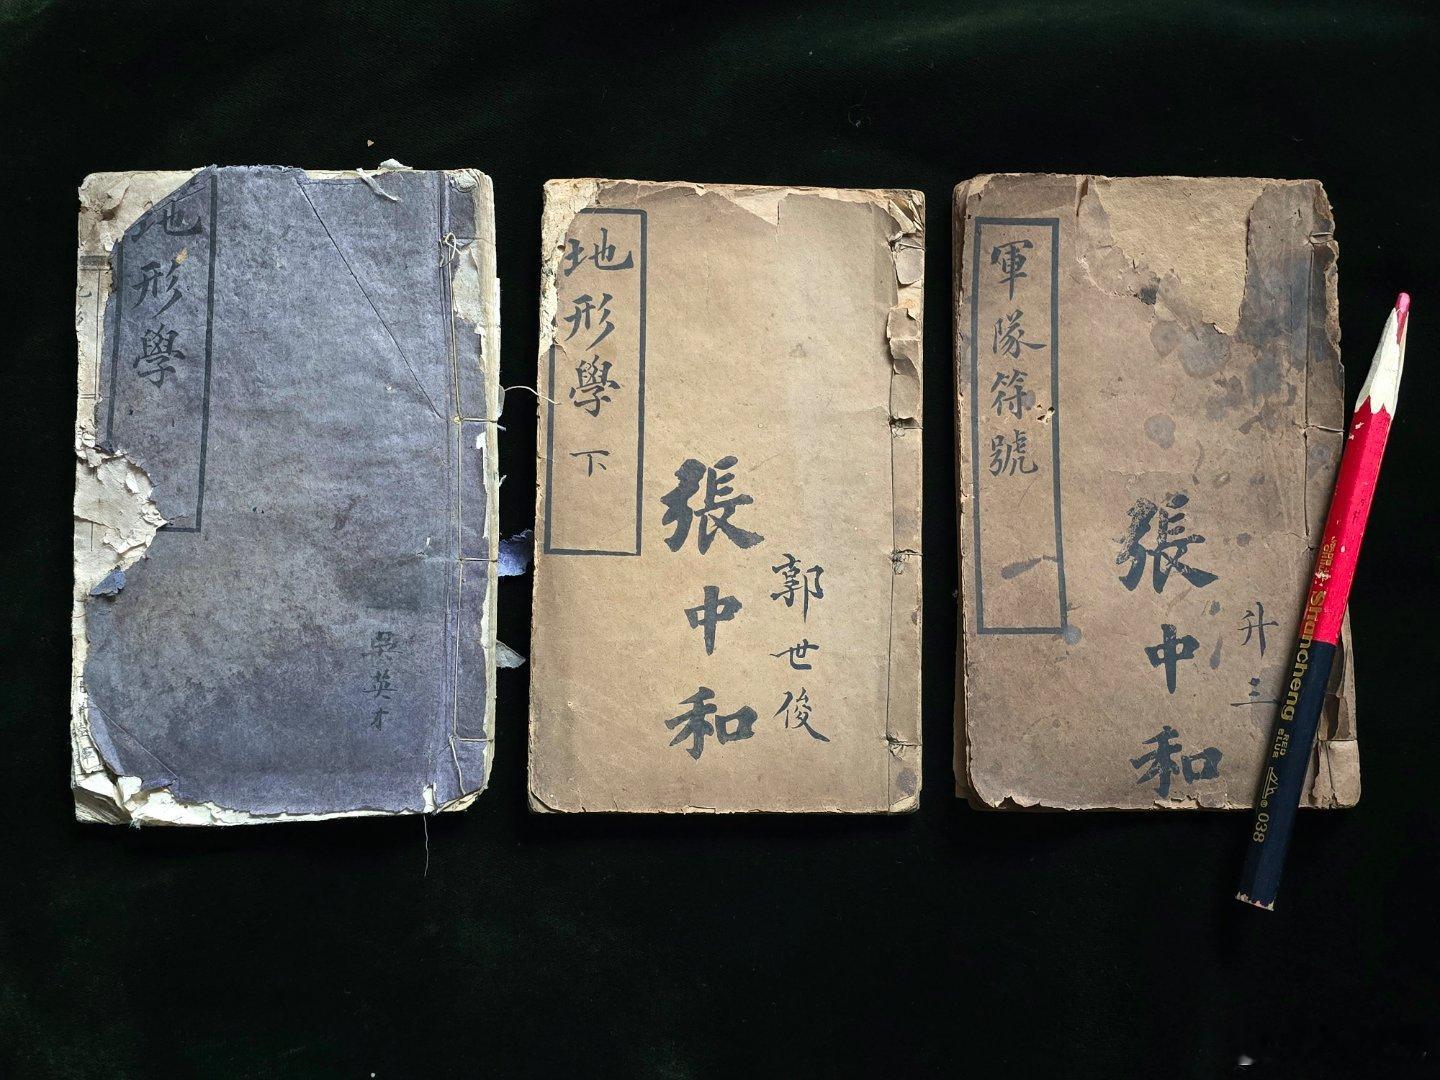 地形學
吳英才
地形學 下
張中和
郭世俊
軍隊符號
張中和
升三
Shancheng
RED BLUE
038